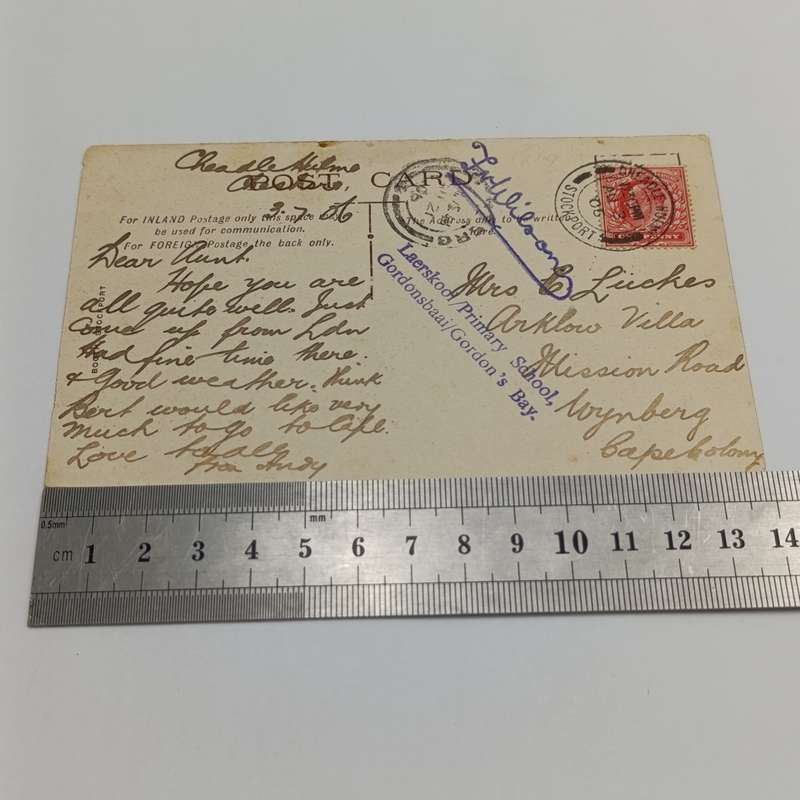 Cheadle Hulme
Cheshire,
POST CARD
3.7.06
For INLAND Postage only this space may be used for communication.
For FOREIGN Postage the back only.
The Address only to be written here.
Dear Aunt.
Hope you are
all quite well. Just
come up from Ldn
Had fine time there.
& Good weather. Think
Bert would like very
much to go to Cape.
Love to all
from Andy
STOCKPORT
Wilson
Laerskool/Primary School,
Gordonsbaai/Gordon's Bay.
STOCKPORT
Mrs E Luckes
Arklow Villa
Mission Road
Wynberg
Cape Colony
0.5mm
mm
cm 1 2 3 4 5 6 7 8 9 10 11 12 13 14